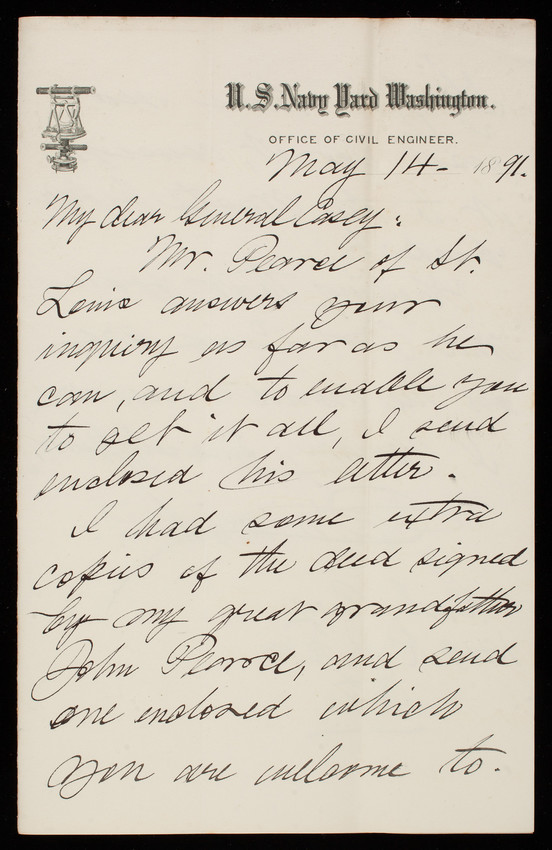 U.S. Navy Yard Washington.
OFFICE OF CIVIL ENGINEER.
May 14 - 1891.
My dear General Casey:
Mr. Pearce of St.
Louis answers your
inquiry as far as he
can, and to enable you
to get it all, I send
enclosed his letter.
I had some extra
copies of the deed signed
by my great grandfather
John Pearce, and send
one enclosed which
you are welcome to.